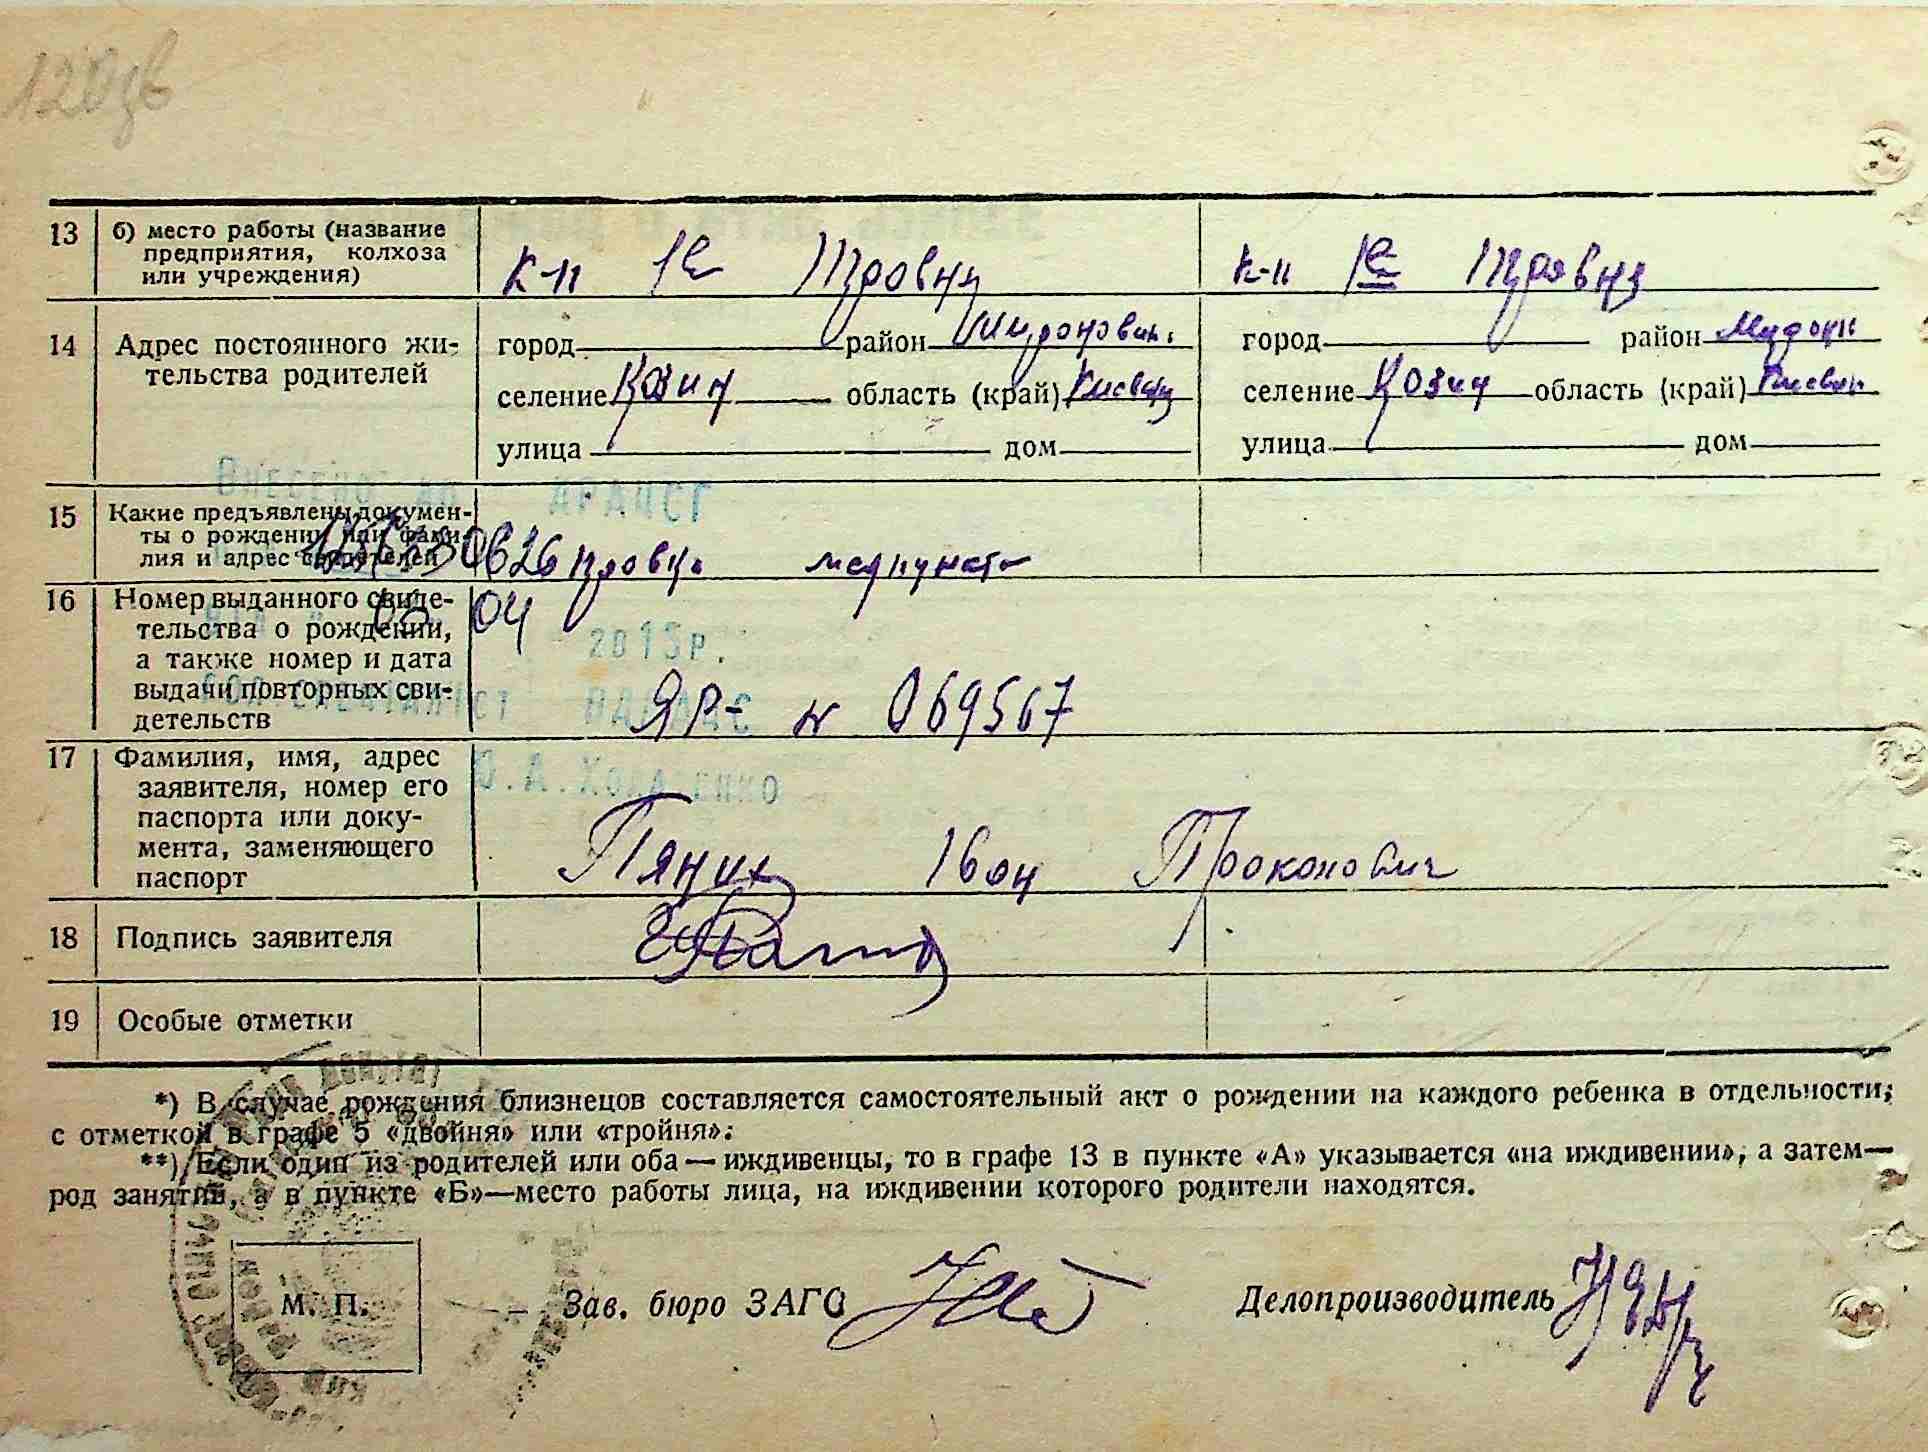 120зв
13 б) место работы (название
предприятия, колхоза
или учреждения)
к-п 1е Травня к-п 1е Травня
14 Адрес постоянного жи-
тельства родителей
город район Миронівськ. город район
селение Козин область (край) Київська селение Козин область (край) Київськ
улица дом улица дом
Внесено до ДРАЦСГ
15 Какие предъявлены докумен-
ты о рождении или фами-
лия и адрес свидетелей
довідка медпункта
16 Номер выданного свиде-
тельства о рождении,
а также номер и дата
выдачи повторных сви-
детельств
04
2013р.
ЯР- № 069567
17 Фамилия, имя, адрес
заявителя, номер его
паспорта или доку-
мента, заменяющего
паспорт
Ю.А.
Іван Прокопович
18 Подпись заявителя
19 Особые отметки
*) В случае рождения близнецов составляется самостоятельный акт о рождении на каждого ребенка в отдельности;
с отметкой в графе 5 «двойня» или «тройня».
**) Если один из родителей или оба — иждивенцы, то в графе 13 в пункте «А» указывается «на иждивении», а затем—
род занятий, а в пункте «Б»—место работы лица, на иждивении которого родители находятся.
М. П. Зав. бюро ЗАГС Делопроизводитель